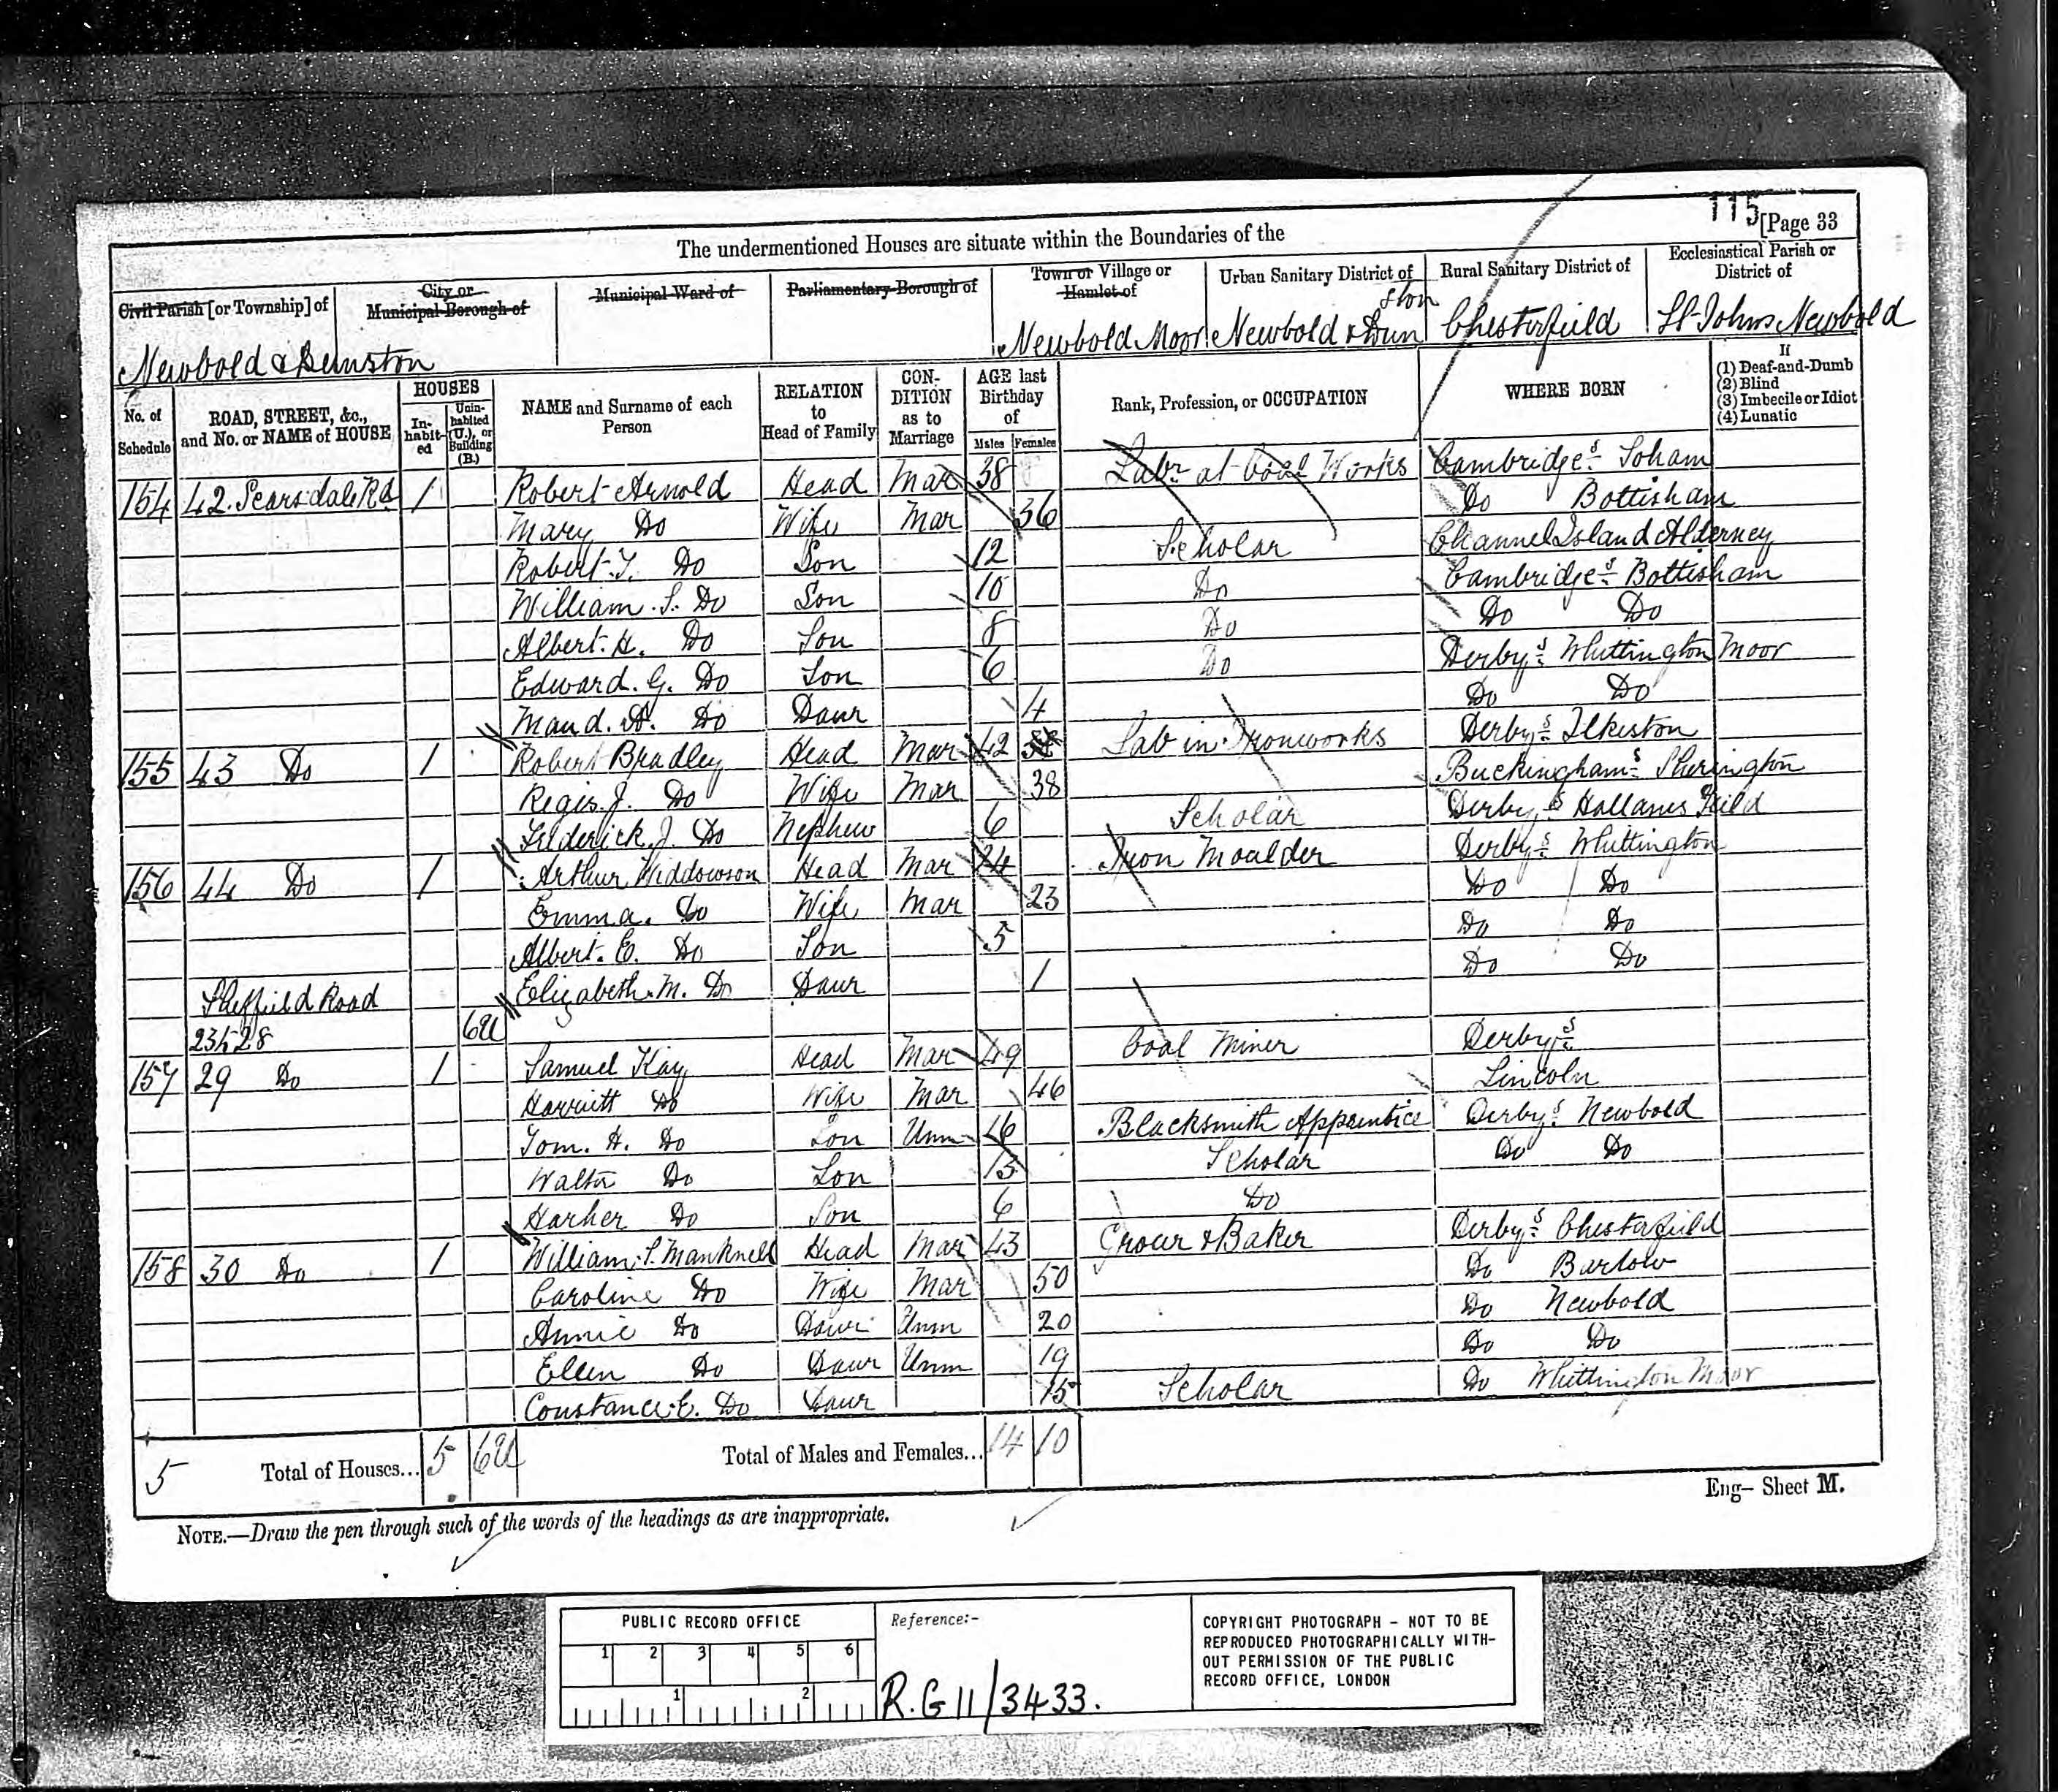 115 [Page 33
The undermentioned Houses are situate within the Boundaries of the
Civil Parish [or Township] of
City or Municipal Borough of
Municipal Ward of
Parliamentary Borough of
Town or Village or Hamlet of
Urban Sanitary District of
Rural Sanitary District of
Ecclesiastical Parish or District of
Newbold & Dunston
Newbold Moor
Newbold & Dunston
Chesterfield
St Johns Newbold
No. of Schedule
ROAD, STREET, &c., and No. or NAME of HOUSE
HOUSES
In-habit-ed
Unin-habited (U.), or Building (B.)
NAME and Surname of each Person
RELATION to Head of Family
CON-DITION as to Marriage
AGE last Birthday of
Males Females
Rank, Profession, or OCCUPATION
WHERE BORN
If
(1) Deaf-and-Dumb
(2) Blind
(3) Imbecile or Idiot
(4) Lunatic
154 42. Scarsdale Rd 1 Robert Arnold Head Mar 38 Labr at Coal Works Cambridges Soham
Mary Do Wife Mar 36 Do Bottisham
Robert. T. Do Son 12 Scholar Channel Island Alderney
William. S. Do Son 10 Do Cambridges Bottisham
Albert. H. Do Son 8 Do Do Do
Edward. G. Do Son 6 Do Derbys Whittington Moor
Maud. A. Do Daur 4 Do Do
155 43 Do 1 Robert Bradley Head Mar 42 Lab in Ironworks Derbys Ilkeston
Regis. J. Do Wife Mar 38 Buckinghams Sherington
Frederick. J. Do Nephew 6 Scholar Derbys Hallams Feild
156 44 Do 1 Arthur Widdowson Head Mar 24 Iron Moulder Derbys Whittington
Emma. Do Wife Mar 23 Do Do
Albert. E. Do Son 5 Do Do
Elizabeth. M. Do Daur 1 Do Do
Sheffield Road
23 to 28 6U
157 29 Do 1 Samuel Kay Head Mar 49 Coal Miner Derbys
Harriett Do Wife Mar 46 Lincoln
Tom. H. Do Son Unm 16 Blacksmith Apprentice Derbys Newbold
Walter Do Son 13 Scholar Do Do
Harher Do Son 6 Do
158 30 Do 1 William. S. Manknell Head Mar 43 Grocer & Baker Derbys Chesterfield
Caroline Do Wife Mar 50 Do Barlow
Annie Do Daur Unm 20 Do Newbold
Ellen Do Daur Unm 19 Do Do
Constance. E. Do Daur 15 Scholar Do Whittington Moor
5 Total of Houses... 5 6U Total of Males and Females... 14 10
Eng- Sheet M.
NOTE.—Draw the pen through such of the words of the headings as are inappropriate.
PUBLIC RECORD OFFICE
1 2 3 4 5 6
1 2
Reference:-
R.G 11/3433.
COPYRIGHT PHOTOGRAPH - NOT TO BE
REPRODUCED PHOTOGRAPHICALLY WITH-
OUT PERMISSION OF THE PUBLIC
RECORD OFFICE, LONDON